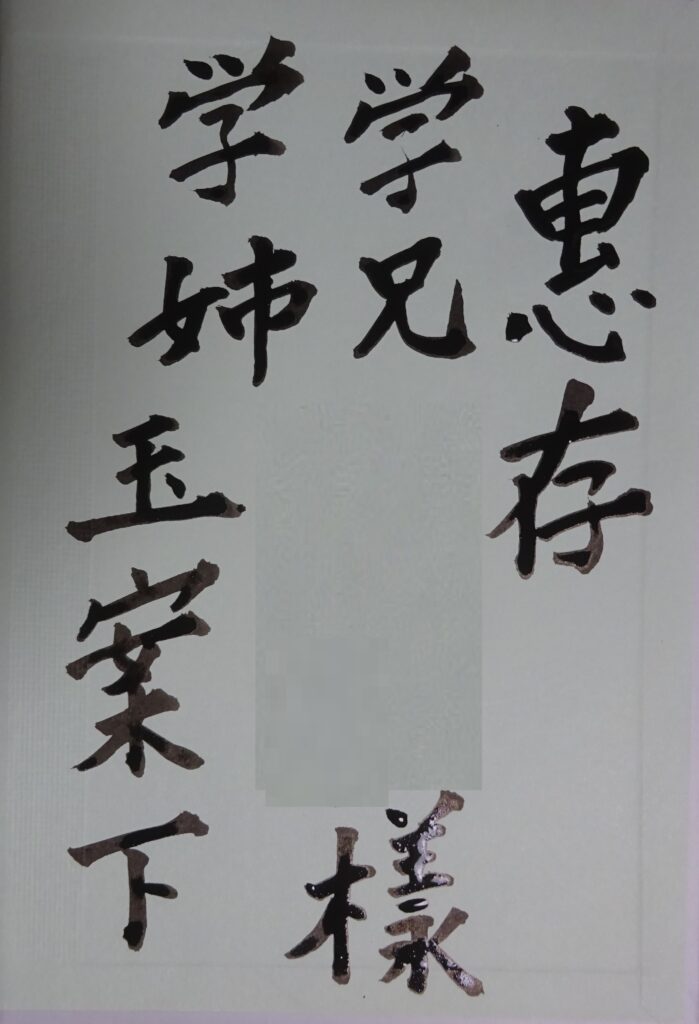 惠存
学兄 樣
学姉玉案下